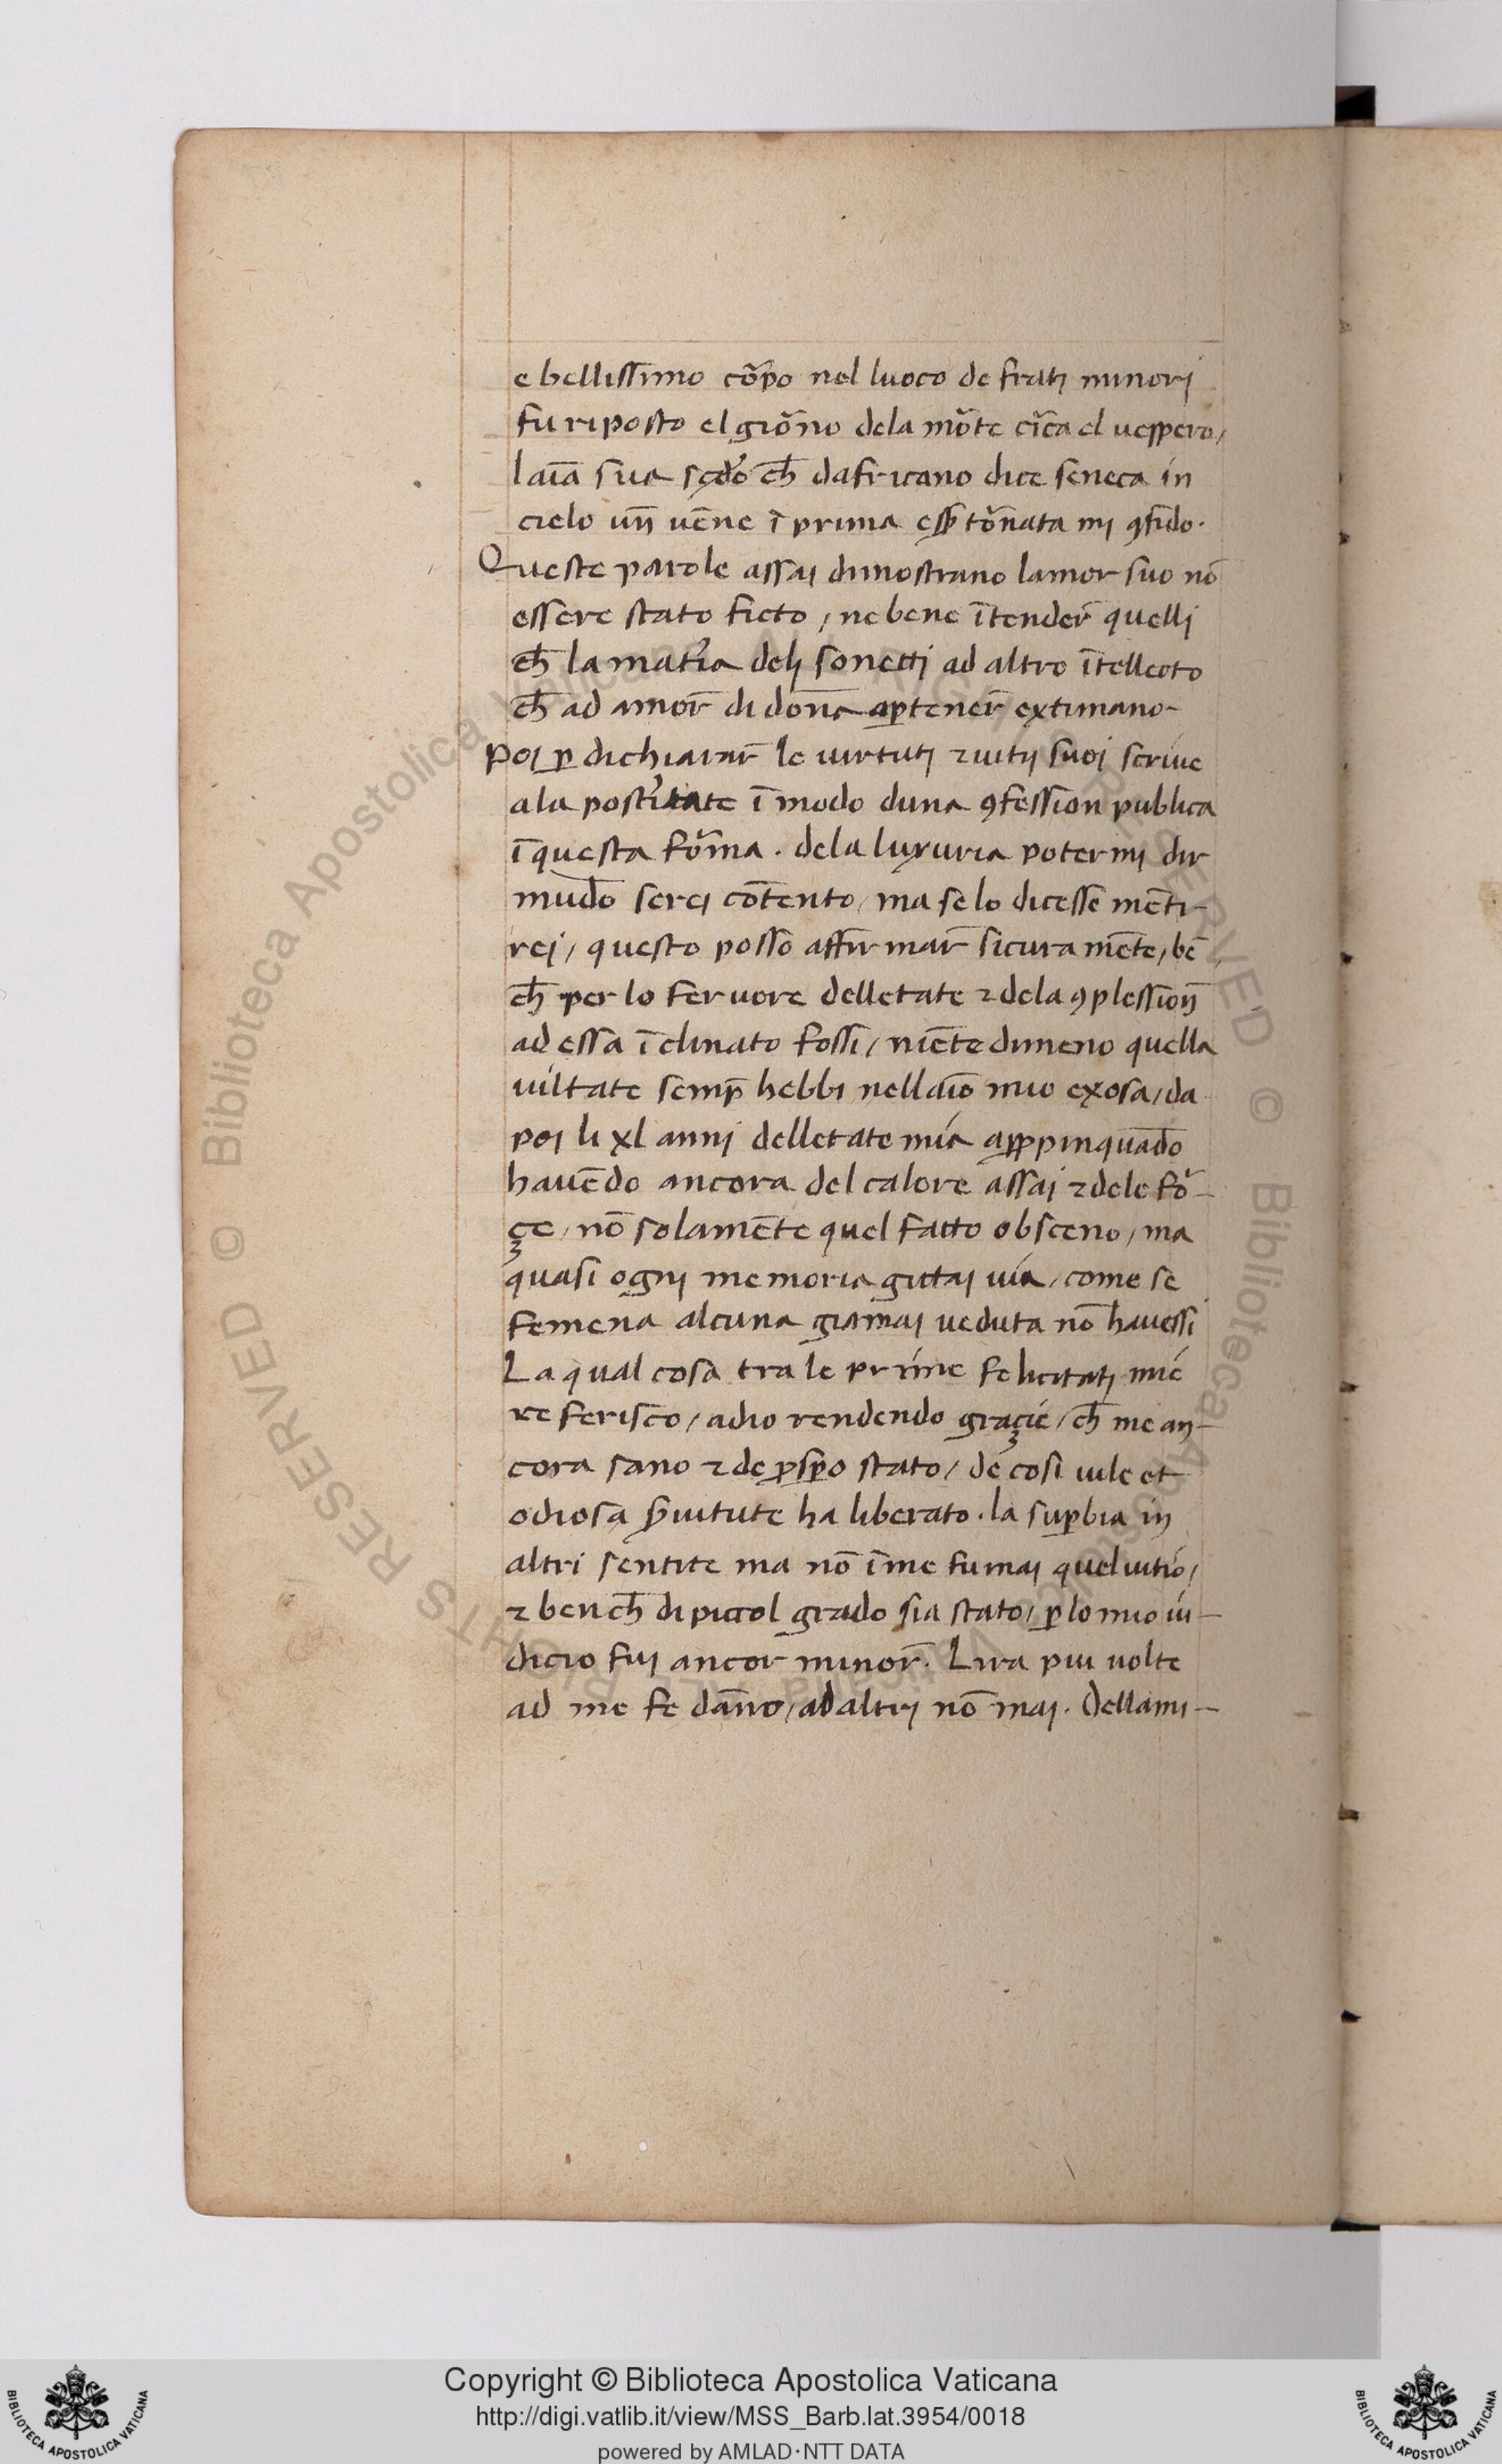 e bellissimo cõpo nel luoco de frati minorj
fu riposto el giõno dela mõte cĩca el uespero /
laīa sua sc̨do ch̄ dafricano dice seneca in
cielo un̄ uēne ī prima esse tõnata mi ꝯfido.
Queste parole assai dimostrano lamor suo nō
essere stato ficto / ne bene ītender̄ quelli
ch̄ la mat̃ia deli sonetti ad altro ītellecto
ch̄ ad amor̄ di don̄a aꝑtener̄ extimano-
Poi ꝑ dichiarar̄ le uirtuti ⁊ uitij suoi scriue
ala post̃itate ī modo duna ꝯfession publica
ī questa fõma . dela luxuria potermi dir
mūdo serei cōtento / ma se lo dicesse mēti-
rei / questo posso affirmar̄ sicuramēte / bē
ch̄ per lo feruore delletate ⁊ dela ꝯplession̄
ad essa īclinato fossi / niēte dimeno quella
uiltate semp̄ hebbi nellaīo mio exosa / da
poi li xl anni delletate mia aꝓpinquādo
hauēdo ancora del calore assai ⁊ dele fõ-
çe / nō solamēte quel fatto obsceno / ma
quasi ogni memoria gittai uia / come se
femena alcuna giāmai ueduta nō hauessi
La qual cosa tra le prime felicitati mie
referisco / adio rendendo graçie / ch̄ me an-
cora sano ⁊ de ꝓsꝑo stato / de cosi uile et
odiosa s̄uitute ha liberato . la suꝑbia in
altri sentite ma nō ī me fu mai quel uitio /
⁊ bench̄ di picol grado sia stato / ꝑ lo mio iu-
dicio fui ancor minor̄ . Lira piu uolte
ad me fe dāno / ad altri nō mai . Dellami-
Copyright © Biblioteca Apostolica Vaticana
http://digi.vatlib.it/view/MSS_Barb.lat.3954/0018
powered by AMLAD·NTT DATA